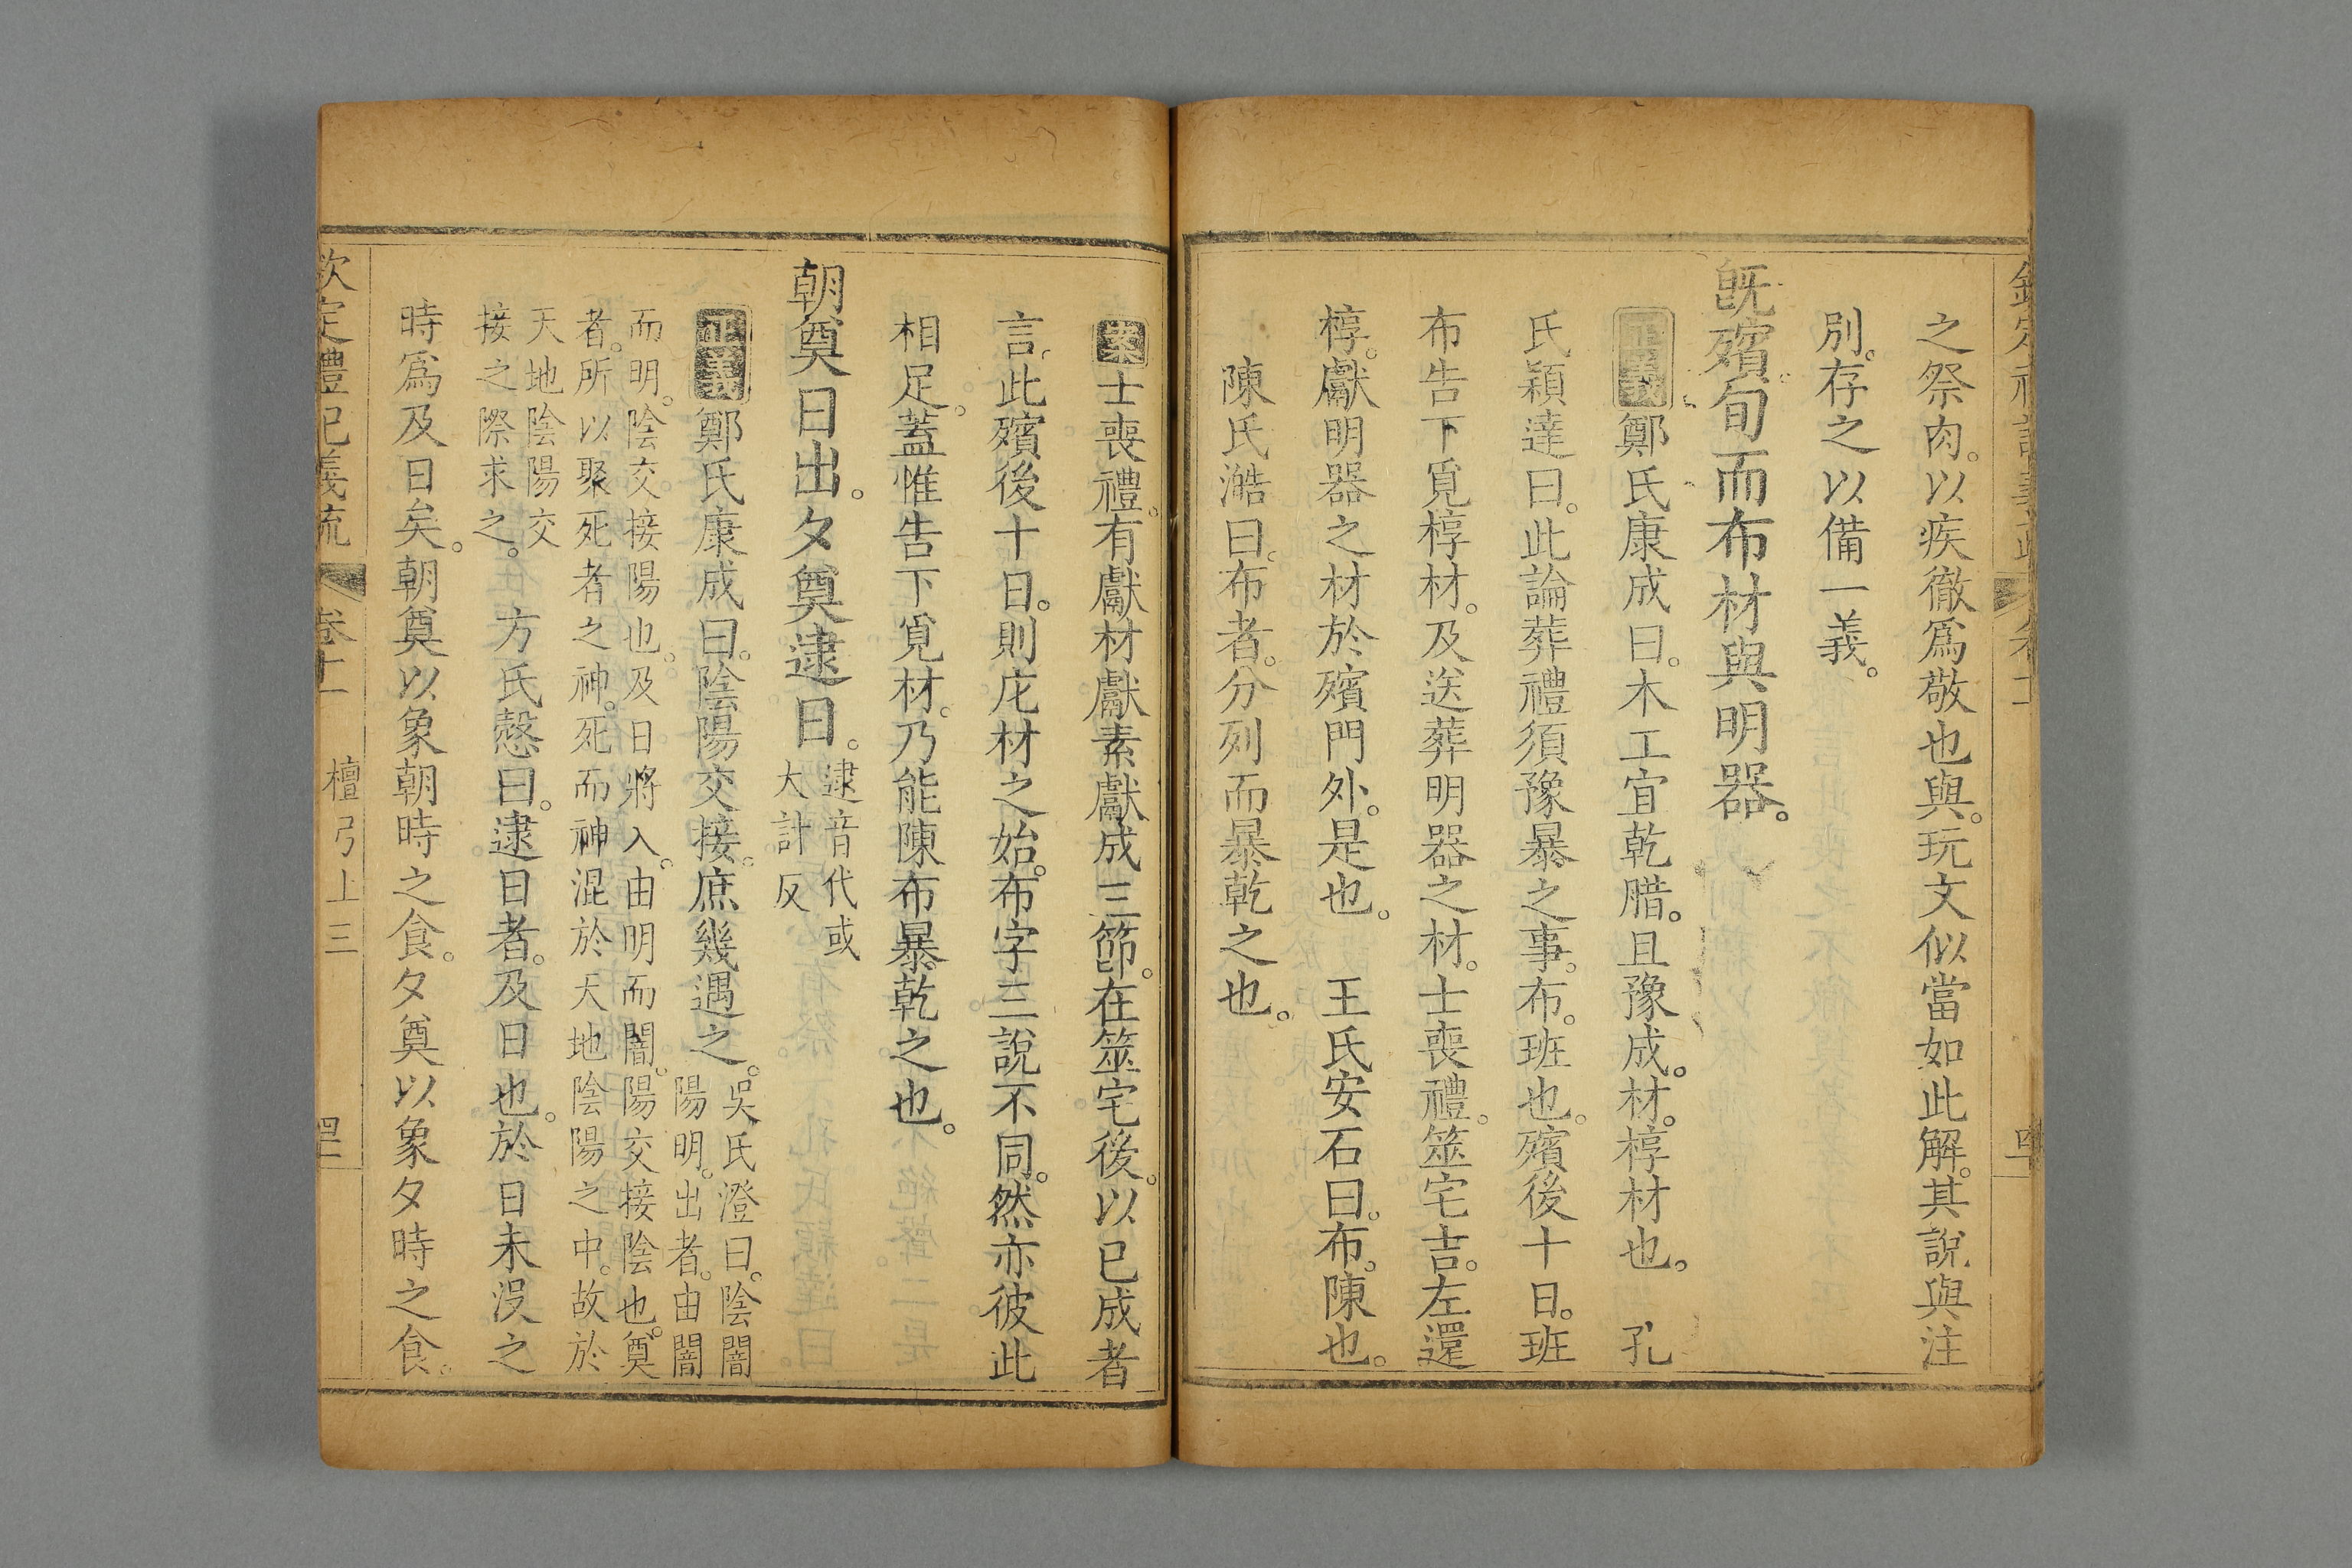 之祭肉。以疾徹爲敬也與。玩文似當如此解。其說與注
別。存之以備一義。
旣殯旬而布材與明器。
正義鄭氏康成曰。木工宜乾腊。且豫成。材。椁材也。　孔
氏穎達曰。此論葬禮須豫暴之事。布。班也。殯後十日。班
布告下覓椁材。及送葬明器之材。士喪禮。筮宅吉。左還
椁。獻明器之材於殯門外。是也。　王氏安石曰。布。陳也。
陳氏澔曰。布者。分列而暴乾之也。
案士喪禮。有獻材獻素獻成三節。在筮宅後。以已成者
言。此殯後十日。則庀材之始。布字三說不同。然亦彼此
相足。蓋惟告下覓材。乃能陳布暴乾之也。
朝奠日出。夕奠逮日。
逮音代或
大計反
正義鄭氏康成曰。陰陽交接。庶幾遇之。
吳氏澄曰。陰闇
陽明。出者。由闇
而明。陰交接陽也。及日將入。由明而闇。陽交接陰也。奠
者。所以聚死者之神。死而神混於天地陰陽之中。故於
天地陰陽交
接之際求之。
方氏慤曰。逮日者。及日也。於日未沒之
時爲及日矣。朝奠以象朝時之食。夕奠以象夕時之食。
欽定禮記義疏
卷十一
檀弓上三